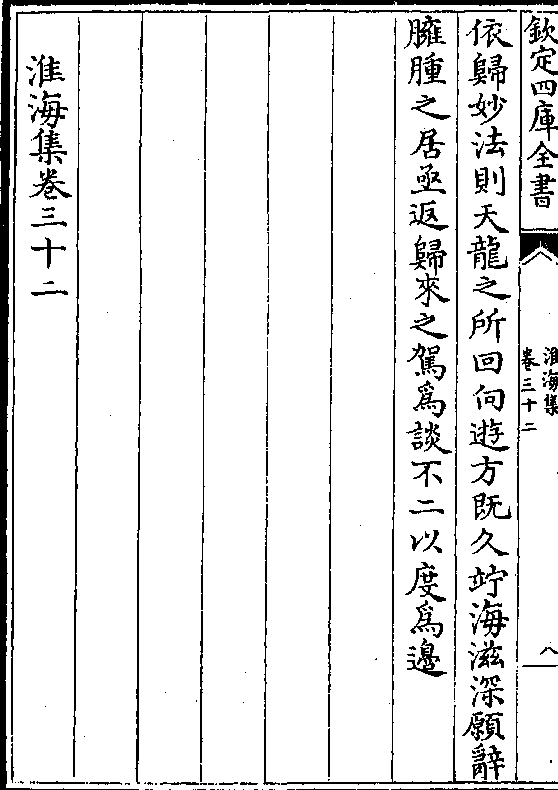 欽定四庫全書
淮海集
卷三十二
八
依歸妙法則天龍之所回向遊方既久竚海滋深願辭
臃腫之居亟返歸來之駕爲談不二以度爲邊
淮海集卷三十二